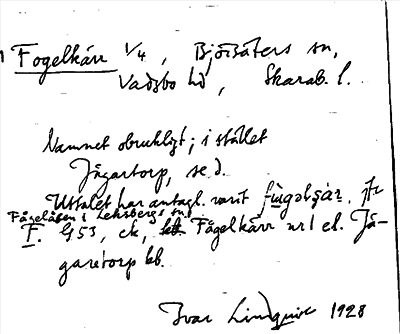 Fogelkärr 1/4, Björsäters sn,
Vadsbo hd, Skarab. l.
Namnet obrukligt; i stället
Jägartorp, se d.
Uttalet har antagl. varit
Fågelåsen i Leksbergs sn
F. G 53, ek, Fågelkärr nr 1 el. Jä-
garetorp kb.
Ivar Lindquist 1928